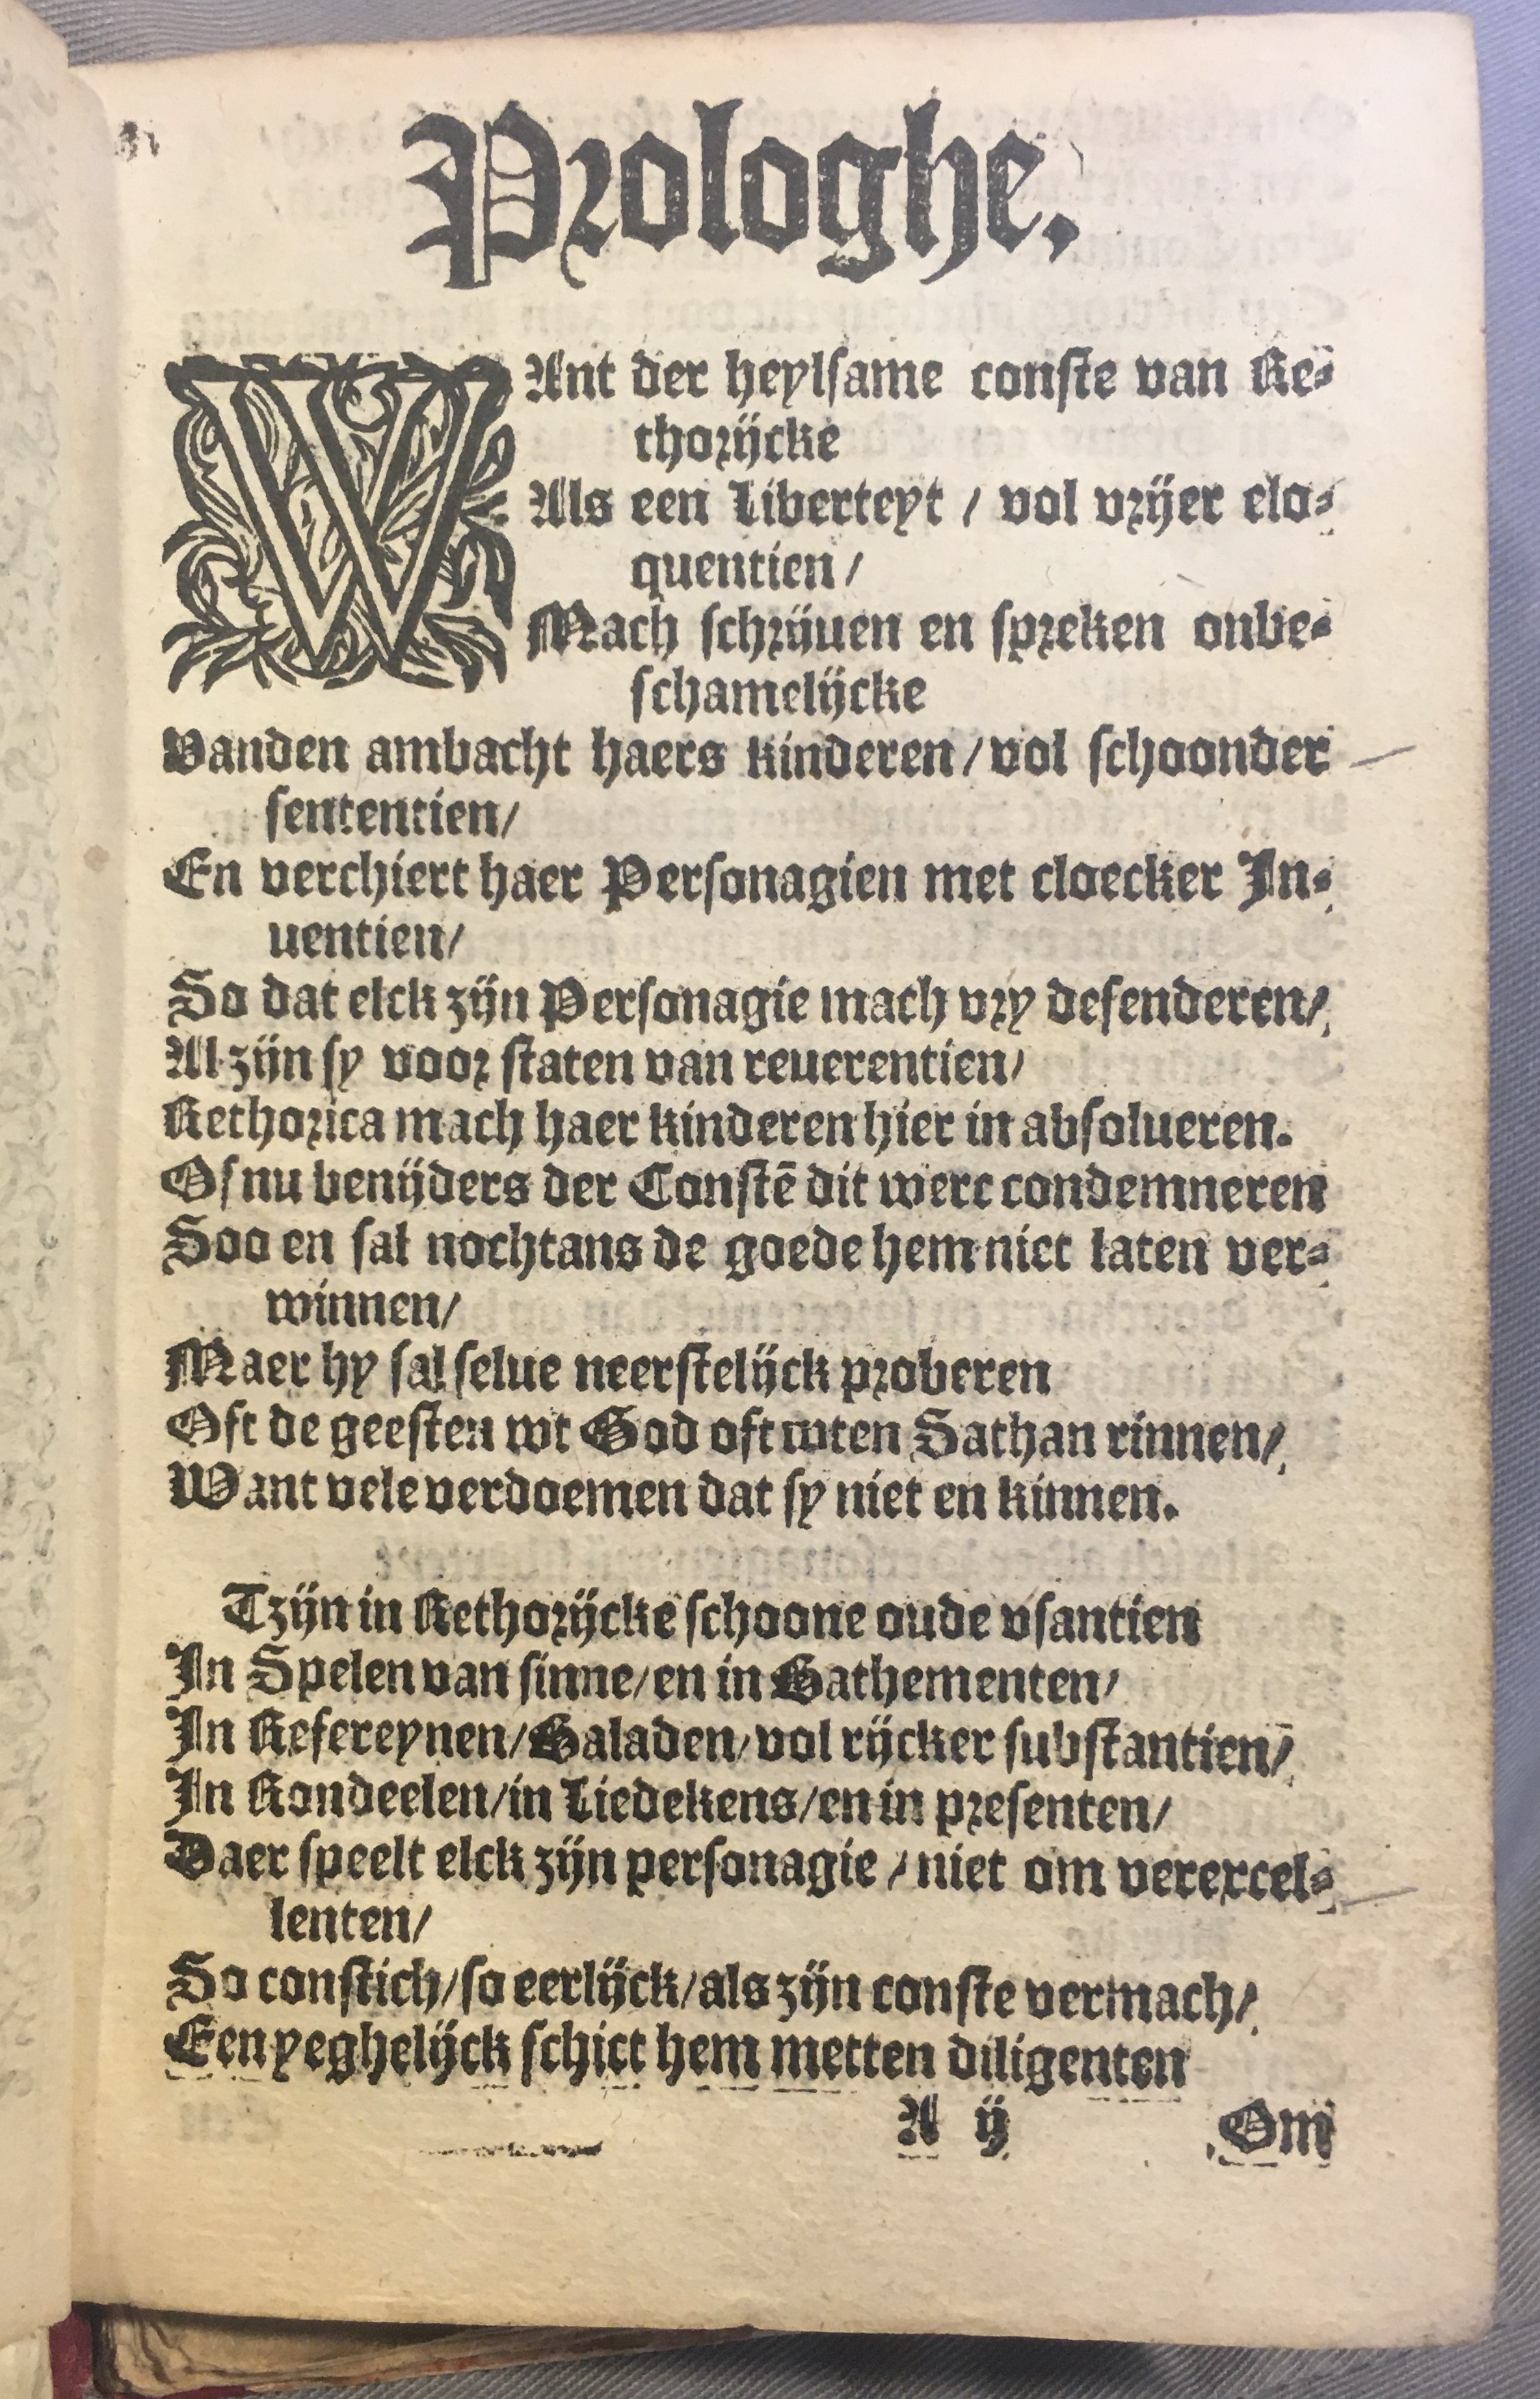 Prologhe.
WAnt der heylsame conste van Re-
thorijcke
Als een Liberteyt / vol vrijer elo-
quentien /
Mach schrijuen en spreken onbe-
schamelijcke
Vanden ambacht haers kinderen / vol schoonder
sententien /
En verchiert haer Personagien met cloecker In-
uentien /
So dat elck zijn Personagie mach vry defenderen /
Al zijn sy voor staten van reuerentien /
Rethorica mach haer kinderen hier in absolueren.
Of nu benijders der Constē dit werc condemneren
Soo en sal nochtans de goede hem niet laten ver-
winnen /
Maer hy sal selue neerstelijck proberen
Oft de geesten wt God oft wten Sathan rinnen /
Want vele verdoemen dat sy niet en kinnen.
Tzijn in Rethorijcke schoone oude vsantien
In Spelen van sinne / en in Bathementen /
In Refereynen / Baladen / vol rijcker substantien /
In Rondeelen / in Liedekens / en in presenten /
Daer speelt elck zijn personagie / niet om verexcel-
lenten /
So constich / so eerlijck / als zijn conste vermach /
Een yeghelijck schict hem metten diligenten
A ij Om